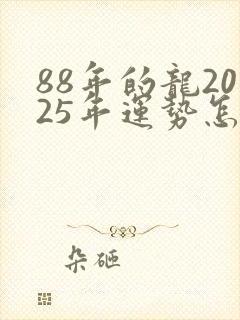 88年的龍20
25年運勢怎
朵砸